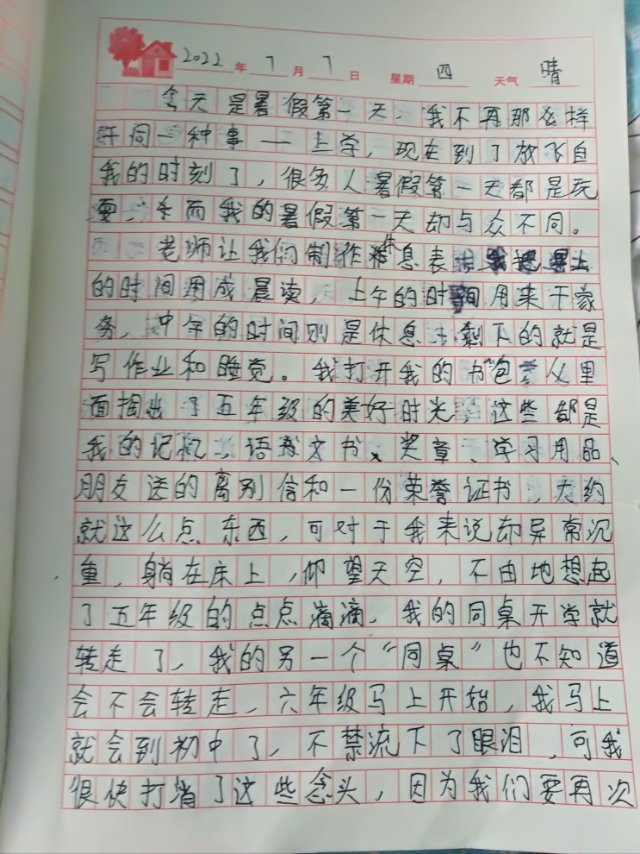 2022年7月7日 星期四 天气晴
今天是暑假第一天，我不再那么样
干同一种事——上学，现在到了放飞自
我的时刻了，很多人暑假第一天都是玩
耍，而我的暑假第一天却与众不同。
老师让我们制作休息表 我把早上
的时间用成晨读，上午的时间用来干家
务，中午的时间则是休息，剩下的就是
写作业和睡觉。我打开我的书包，从里
面掏出了五年级的美好时光，这些都是
我的记忆：语文书、奖章、学习用品、
朋友送的离别信和一份荣誉证书，大约
就这么点东西，可对于我来说却异常沉
重，躺在床上，仰望天空，不由地想起
了五年级的点点滴滴，我的同桌开学就
转走了，我的另一个“同桌”也不知道
会不会转走，六年级马上开始，我马上
就会到初中了，不禁流下了眼泪，可我
很快打消了这些念头，因为我们要再次